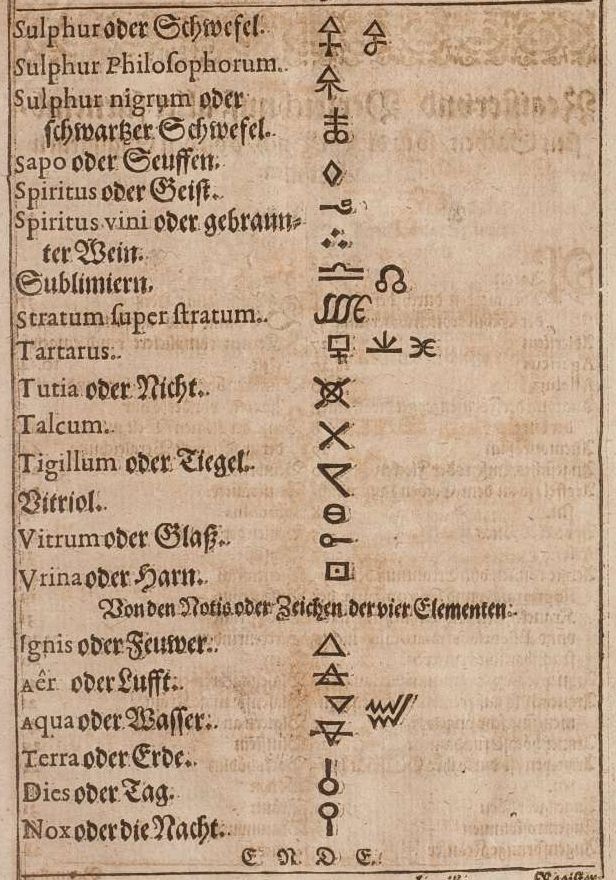 Sulphur oder Schwefel.
Sulphur Philoſophorum.
Sulphur nigrum oder
ſchwartzer Schwefel.
Sapo oder Seuffen.
Spiritus oder Geiſt.
Spiritus vini oder gebrann⸗
ter Wein.
Sublimiern.
Stratum ſuper ſtratum.
Tartarus.
Tutia oder Nicht.
Talcum.
Tigillum oder Tiegel.
Vitriol.
Vitrum oder Glaß.
Vrina oder Harn.
Von den Notis oder Zeichen der vier Elementen.
Ignis oder Feuwer.
Aêr oder Lufft.
Aqua oder Waſſer.
Terra oder Erde.
Dies oder Tag.
Nox oder die Nacht.
E N D E.